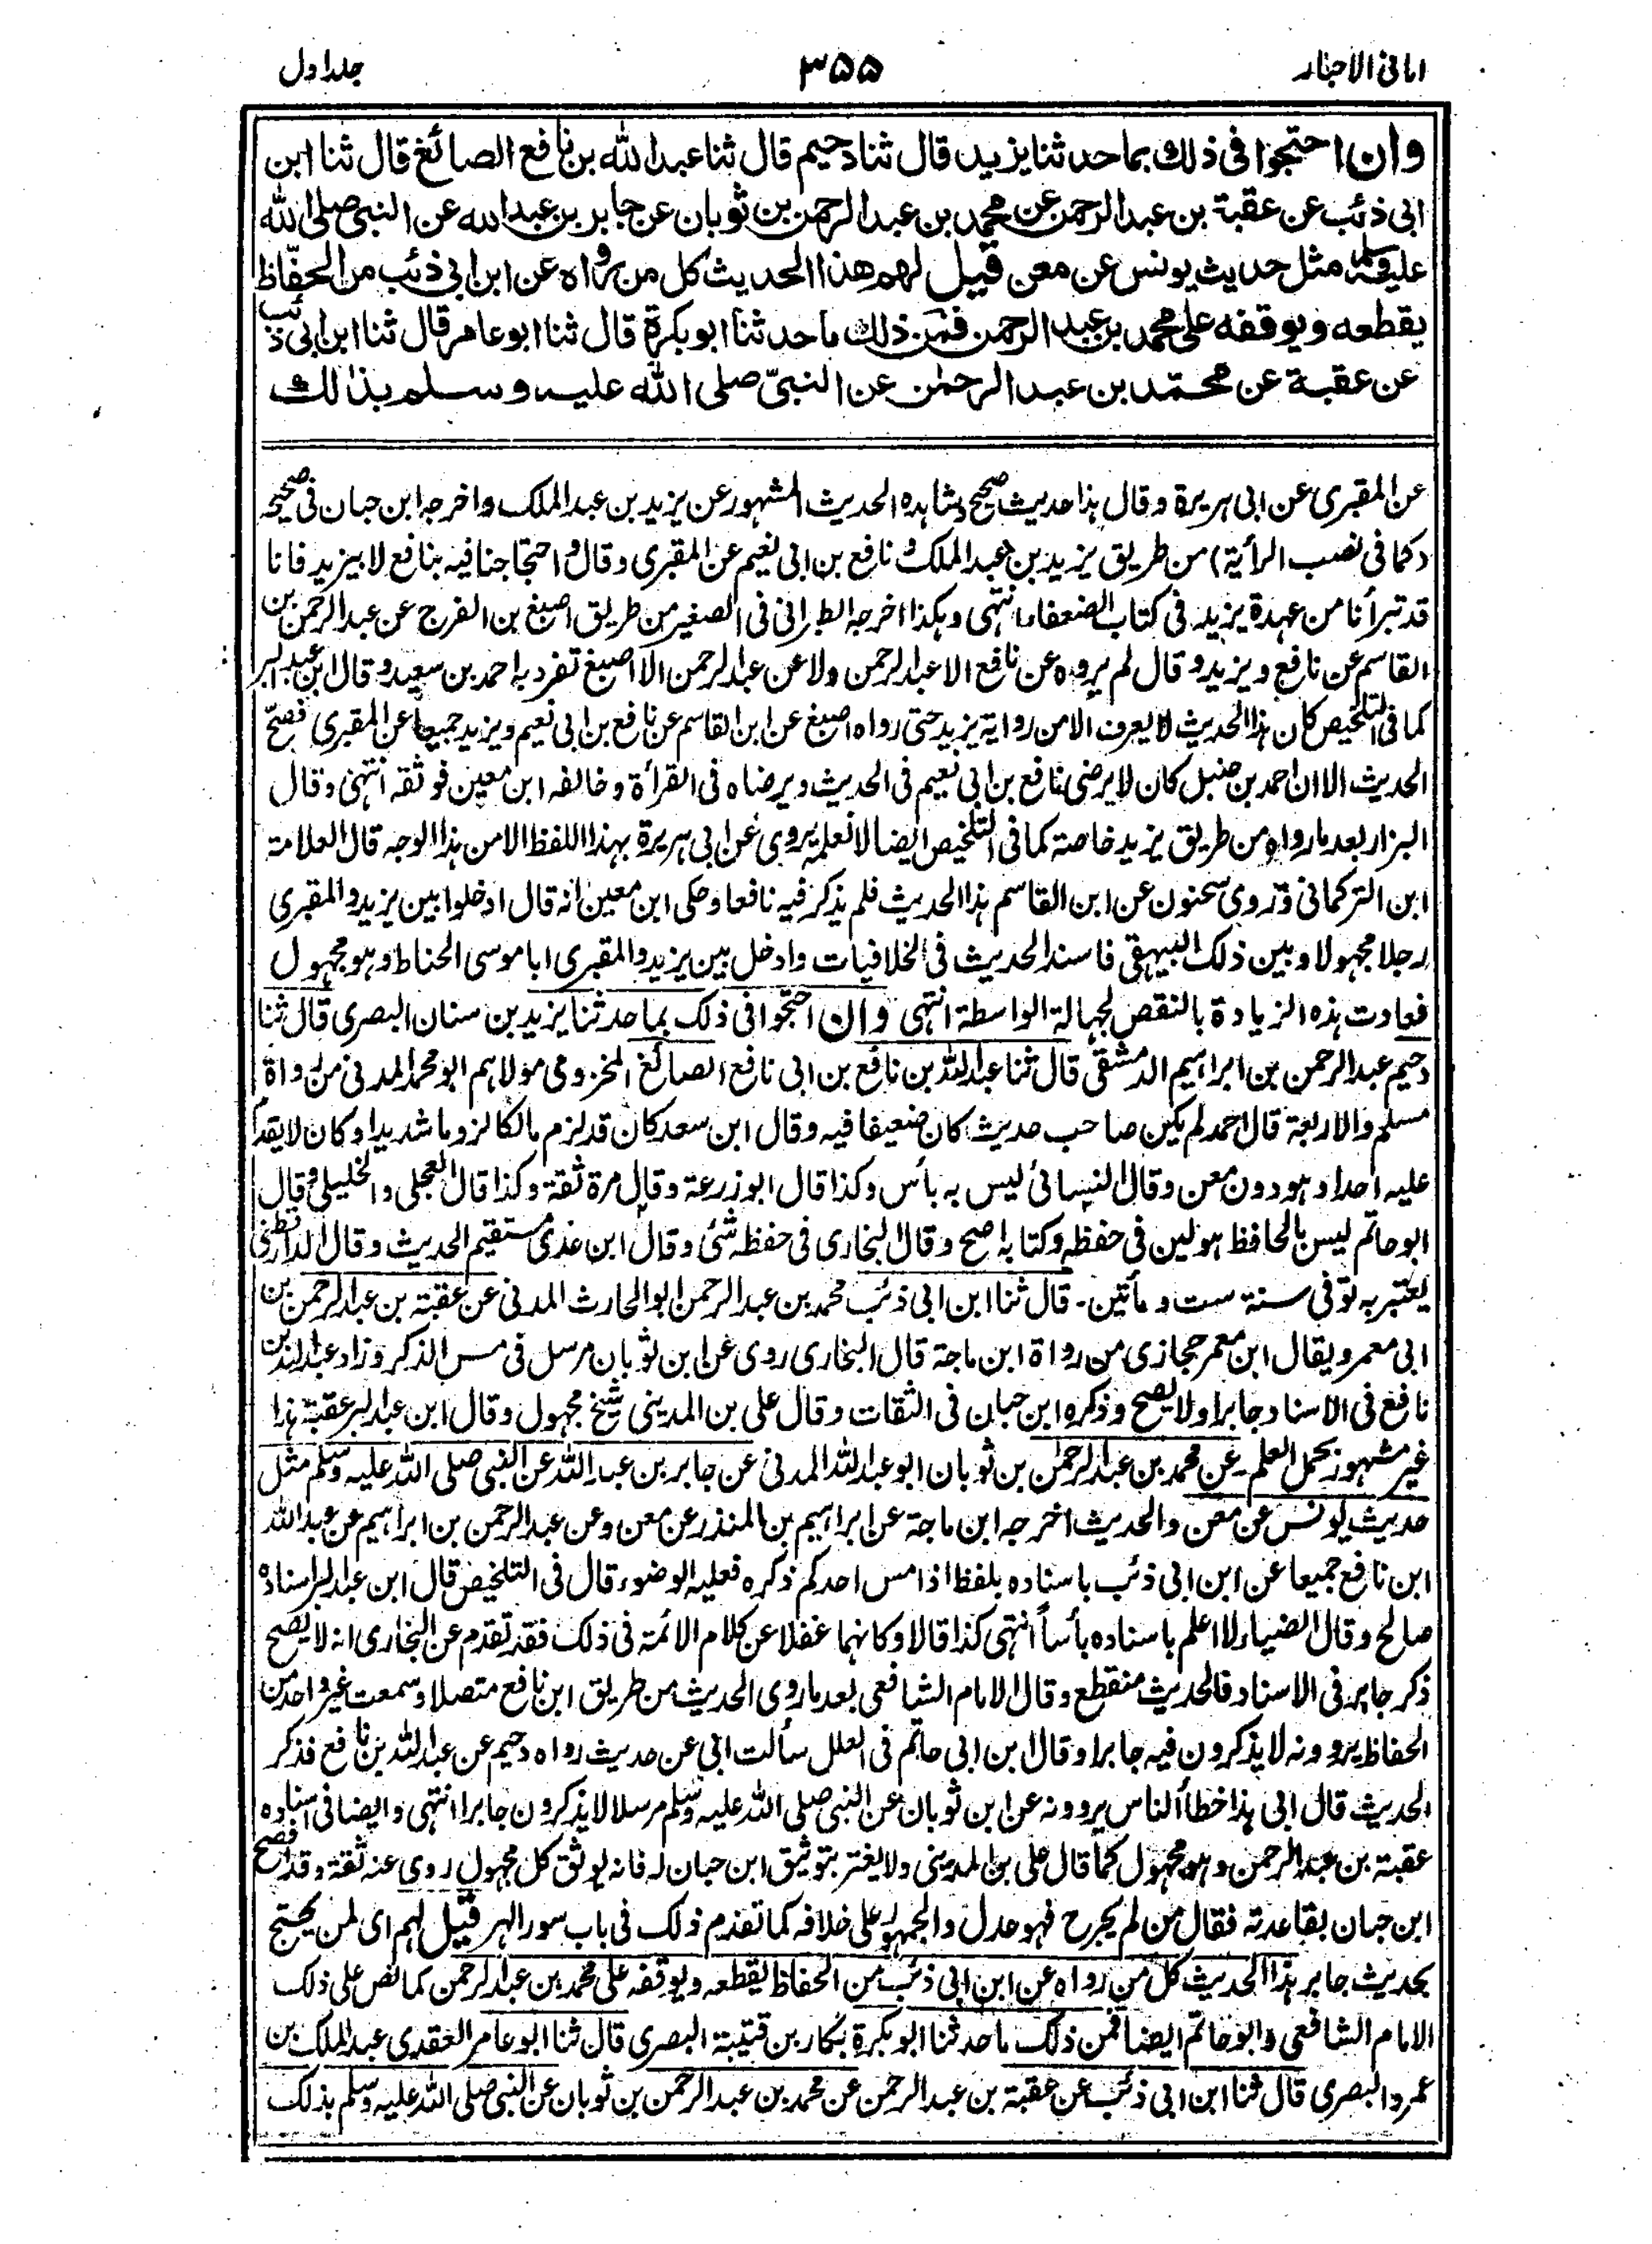 امانی الاحبار
۳۵۵
جلد اول
وان احتجوا فی ذلك بما حدثنا یزید قال ثنا دحیم قال ثنا عبد الله بن نافع الصائغ قال ثنا ابن
ابی ذئب عن عقبة بن عبد الرحمن عن محمد بن عبد الرحمن بن ثوبان عن جابر بن عبد الله عن النبی صلی الله
علیه وسلم مثل حدیث یونس عن معن قیل لهم هذا الحدیث كل من رواه عن ابن ابی ذئب من الحفاظ
یقطعه ویوقفه علی محمد بن عبد الرحمن فمن ذلك ما حدثنا ابو بكرة قال ثنا ابو عامر قال ثنا ابن ابی ذئب
عن عقبة عن محمد بن عبد الرحمن عن النبیّ صلی الله علیه وسلم بذالك
عن المقبری عن ابی هریرة وقال هذا حدیث صحیح وشاهده الحدیث المشهور عن یزید بن عبد الملك واخرجه ابن حبان فی صحیحه
(كما فی نصب الرأیة) من طریق یزید بن عبد الملك و نافع بن ابی نعیم عن المقبری وقال و احتجاجنا فیه بنافع لا بیزید فانا
قد تبرأنا من عهدة یزید فی كتاب الضعفاء انتهی وهكذا اخرجه الطبرانی فی الصغیر من طریق اصبغ بن الفرج عن عبد الرحمن بن
القاسم عن نافع ویزید وقال لم یروه عن نافع الا عبد الرحمن ولا عن عبد الرحمن الا اصبغ تفرد به احمد بن سعید وقال ابن عبد البر
كما فی التلخیص كان هذا الحدیث لا یعرف الا من روایة یزید حتی رواه اصبغ عن ابن القاسم عن نافع بن ابی نعیم ویزید جمیعا عن المقبری فصحّ
الحدیث الا ان احمد بن حنبل كان لا یرضی نافع بن ابی نعیم فی الحدیث ویرضاه فی القرأة وخالفه ابن معین فوثقه انتهی وقال
البزار بعد ما رواه من طریق یزید خاصة كما فی التلخیص ایضا لا نعلمه یروی عن ابی هریرة بهذا اللفظ الا من هذا الوجه قال العلامة
ابن التركمانی وروی سحنون عن ابن القاسم هذا الحدیث فلم یذكر فیه نافعا وحكی ابن معین انه قال ادخلوا بین یزید والمقبری
رجلا مجهولا وبین ذلك البیهقی فاسند الحدیث فی الخلافیات وادخل بین یزید والمقبری ابا موسی الحناط وهو مجهول
فعادت هذه الزیادة بالنقص لجهالة الواسطة انتهی وان احتجوا فی ذلك بما حدثنا یزید بن سنان البصری قال ثنا
دحیم عبد الرحمن بن ابراهیم الدمشقی قال ثنا عبد الله بن نافع بن ابی نافع الصائغ المخزومی مولاهم ابو محمد المدنی من رواة
مسلم والاربعة قال احمد لم یكن صاحب حدیث كان ضعیفا فیه وقال ابن سعد كان قد لزم مالكا لزوما شدیدا وكان لا یقدم
علیه احدا وهو دون معن وقال النسائی لیس به بأس وكذا قال ابو زرعة وقال مرة ثقة وكذا قال العجلی والخلیلی وقال
ابو حاتم لیس بالحافظ هو لین فی حفظه وكتابه اصح وقال البخاری فی حفظه شئ وقال ابن عدی مستقیم الحدیث وقال الدارقطنی
یعتبر به توفی سنة ست ومأتین۔ قال ثنا ابن ابی ذئب محمد بن عبد الرحمن ابو الحارث المدنی عن عقبة بن عبد الرحمن بن
ابی معمر ویقال ابن معمر حجازی من رواة ابن ماجة قال البخاری روی عن ابن ثوبان مرسل فی مس الذكر وزاد عبد الله بن
نافع فی الاسناد جابرا ولا یصح وذكره ابن حبان فی الثقات وقال علی بن المدینی شیخ مجهول وقال ابن عبد البر عقبة هذا
غیر مشهور بحمل العلم۔ عن محمد بن عبد الرحمٰن بن ثوبان ابو عبد الله المدنی عن جابر بن عبد الله عن النبی صلی الله علیه وسلم مثل
حدیث یونس عن معن والحدیث اخرجه ابن ماجة عن ابراهیم بن المنذر عن معن وعن عبد الرحمن بن ابراهیم عن عبد الله
ابن نافع جمیعا عن ابن ابی ذئب باسناده بلفظ اذا مس احدكم ذكره فعلیه الوضوء قال فی التلخیص قال ابن عبد البر اسناده
صالح وقال الضیاء لا اعلم باسناده بأسا انتهی كذا قالا وكانهما غفلا عن كلام الائمة فی ذلك فقد تقدم عن البخاری انه لا یصح
ذكر جابر فی الاسناد فالحدیث منقطع وقال الامام الشافعی بعد ما روی الحدیث من طریق ابن نافع متصلا وسمعت غیر واحد من
الحفاظ یروونه لا یذكرون فیه جابرا وقال ابن ابی حاتم فی العلل سألت ابی عن حدیث رواه دحیم عن عبد الله بن نافع فذكر
الحدیث قال ابی هذا خطأ الناس یروونه عن ابن ثوبان عن النبی صلی الله علیه وسلم مرسلا لا یذكرون جابرا انتهی وایضا فی اسناده
عقبة بن عبد الرحمن وهو مجهول كما قال علی بن المدینی ولا یغتر بتوثیق ابن حبان له فانه یوثق كل مجهول روی عنه ثقة وقد افصح
ابن حبان بقاعدته فقال من لم یجرح فهو عدل والجمهور علی خلافه كما تقدم ذلك فی باب سور الهر قیل لهم ای لمن یحتج
بحدیث جابر هذا الحدیث كل من رواه عن ابن ابی ذئب من الحفاظ یقطعه ویوقفه علی محمد بن عبد الرحمن كما نص علی ذلك
الامام الشافعی وابو حاتم ایضا فمن ذلك ما حدثنا ابو بكرة بكار بن قتیبة البصری قال ثنا ابو عامر العقدی عبد الملك بن
عمرو البصری قال ثنا ابن ابی ذئب عن عقبة بن عبد الرحمن عن محمد بن عبد الرحمن بن ثوبان عن النبی صلی الله علیه وسلم بذلك